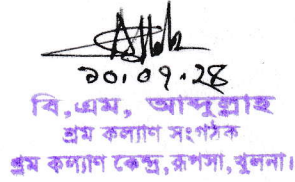 ১০.০৭.২৪
বি,এম, আব্দুল্লাহ
শ্রম কল্যাণ সংগঠক
শ্রম কল্যাণ কেন্দ্র, রূপসা, খুলনা।